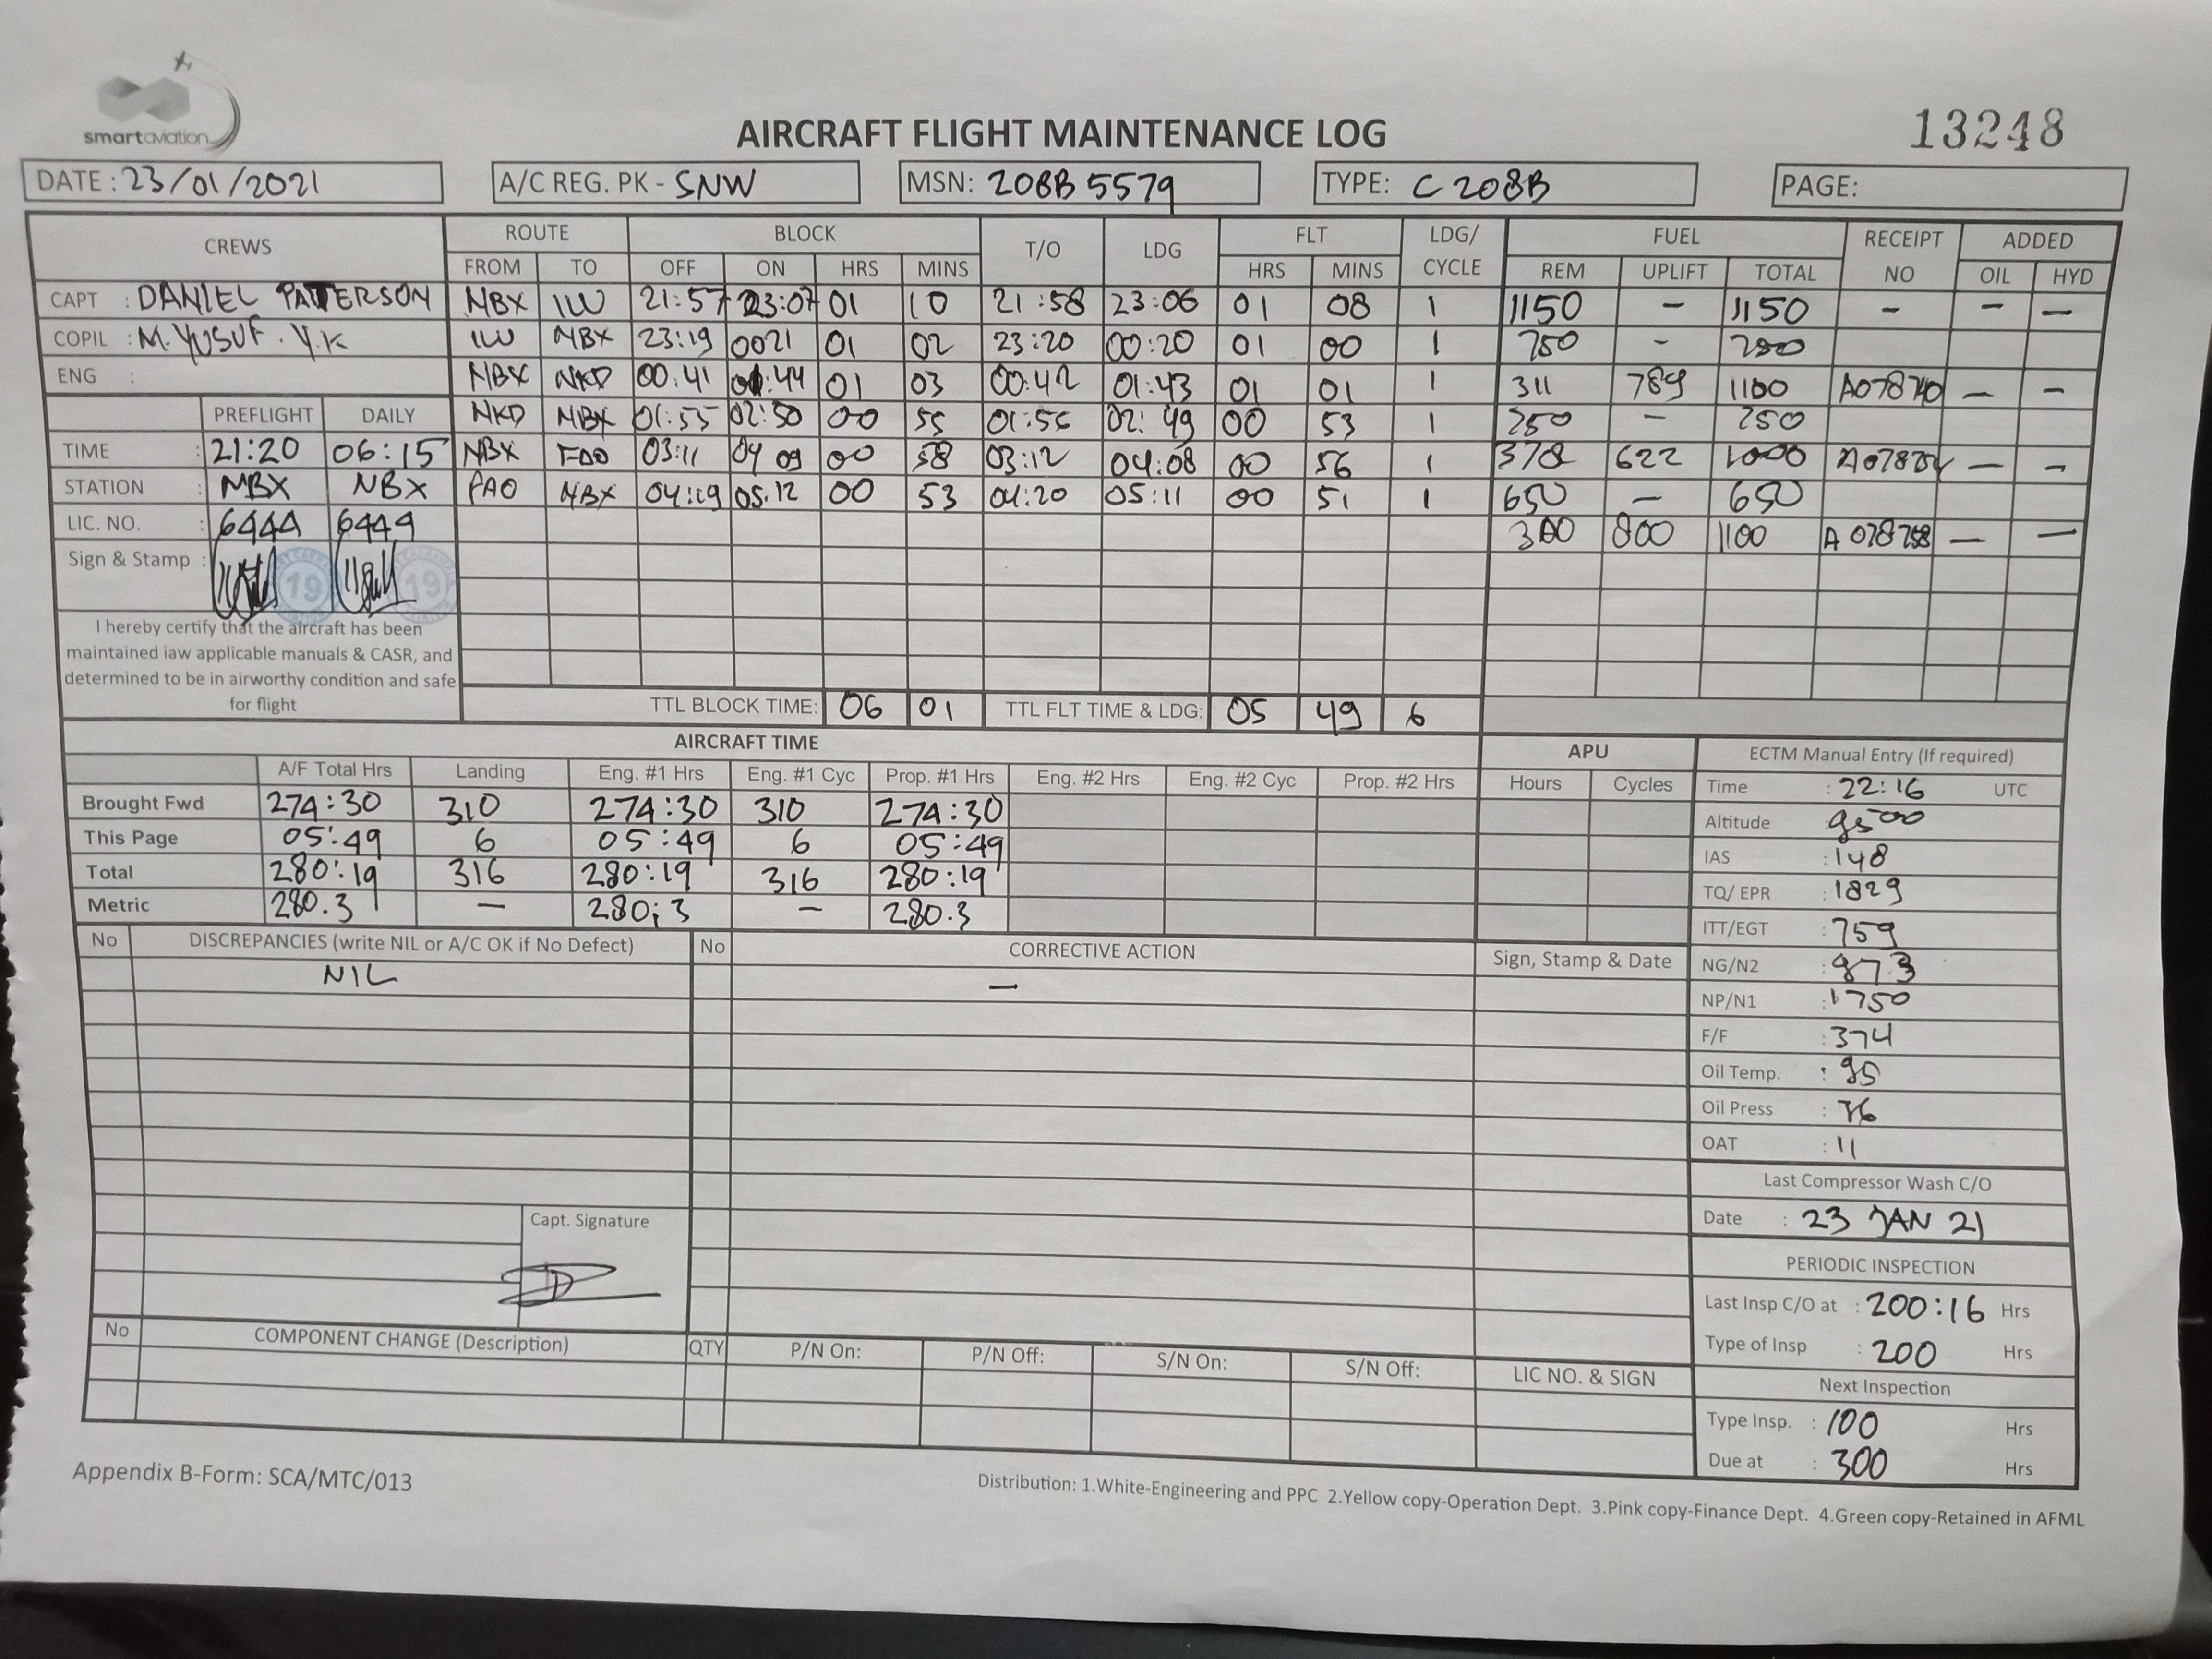 smartaviation
AIRCRAFT FLIGHT MAINTENANCE LOG
13248
DATE : 23/01/2021 A/C REG. PK - SNW MSN: 208B 5579 TYPE: C 208B PAGE:
CREWS ROUTE BLOCK T/O LDG FLT LDG/ CYCLE FUEL RECEIPT NO ADDED
FROM TO OFF ON HRS MINS HRS MINS REM UPLIFT TOTAL OIL HYD
CAPT : DANIEL PATTERSON NBX ILU 21:57 23:07 01 10 21:58 23:06 01 08 1 1150 - 1150 - - -
COPIL : M. YUSUF . Y.K ILU NBX 23:19 0021 01 02 23:20 00:20 01 00 1 750 -
ENG : NBX NKD 00:41 01:44 01 03 00:42 01:43 01 01 1 311 789 1100 - -
PREFLIGHT DAILY NKD NBX 01:55 02:50 00 55 01:56 02:49 00 53 1 -
TIME : 21:20 06:15 NBX 03:11 04 09 00 58 03:12 04:08 00 56 1 378 622 1000 - -
STATION : NBX NBX FAO NBX 04:19 05.12 00 53 04:20 05:11 00 51 1 650 - 650
LIC. NO. : 6444 6444 300 800 1100 - -
Sign & Stamp : 19 19
I hereby certify that the aircraft has been
maintained iaw applicable manuals & CASR, and
determined to be in airworthy condition and safe
for flight
TTL BLOCK TIME: 06 01 TTL FLT TIME & LDG: 05 49 6
AIRCRAFT TIME APU
A/F Total Hrs Landing Eng. #1 Hrs Eng. #1 Cyc Prop. #1 Hrs Eng. #2 Hrs Eng. #2 Cyc Prop. #2 Hrs Hours Cycles
Brought Fwd 274:30 310 274:30 310 274:30
This Page 05:49 6 05:49 6 05:49
Total 280:19 316 280:19 316 280:19
Metric 280.3 - 280;3 - 280.3
ECTM Manual Entry (If required)
Time : 22:16 UTC
Altitude 9500
IAS : 148
TQ/ EPR : 1829
ITT/EGT : 759
NG/N2 : 973
NP/N1 : 1750
F/F : 374
Oil Temp. : 95
Oil Press :
OAT : 11
Last Compressor Wash C/O
Date : 23 JAN 21
PERIODIC INSPECTION
Last Insp C/O at : 200:16 Hrs
Type of Insp : 200 Hrs
Next Inspection
Type Insp. : 100 Hrs
Due at : 300 Hrs
No DISCREPANCIES (write NIL or A/C OK if No Defect) No CORRECTIVE ACTION Sign, Stamp & Date
NIL -
Capt. Signature
No COMPONENT CHANGE (Description) QTY P/N On: P/N Off: S/N On: S/N Off: LIC NO. & SIGN
Appendix B-Form: SCA/MTC/013
Distribution: 1.White-Engineering and PPC 2.Yellow copy-Operation Dept. 3.Pink copy-Finance Dept. 4.Green copy-Retained in AFML